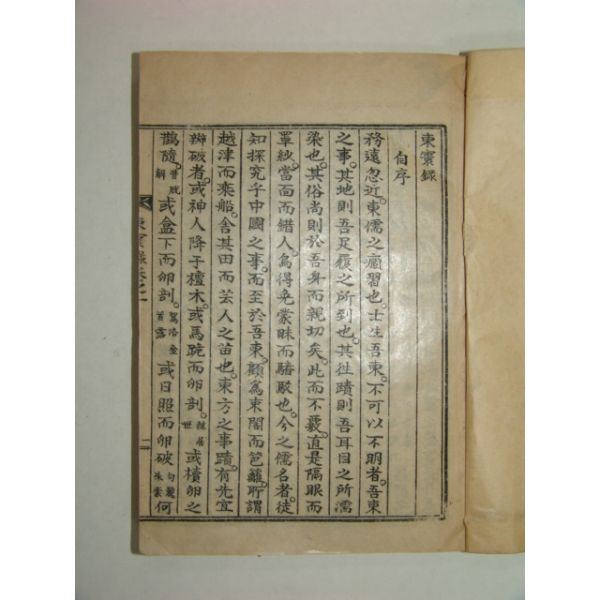 東寰錄
自序
務遠忽近。東儒之痼習也。士生吾東。不可以不明者。吾東
之事。其地則吾足履之所到也。其往蹟則吾耳目之所濡
染也。其俗尚則於吾身而親切矣。此而不覈。直是隔眼而
罩紗。當面而錯人。烏得免蒙昧而貽駁也。今之儒名者。徒
知探究乎中國之事。而至於吾東。顧爲束閣而笆籬。所謂
越津而乘船。舍其田而芸人之苗也。東方之事蹟。有先宜
辨破者。或神人降于檀木。或馬跪而卵剖。赫居世 或櫝卵之
鵲隨。昔脫解 或盒下而卵剖。駕洛金首露 或日照而卵破 句麗朱蒙 何
東寰錄卷之一
二